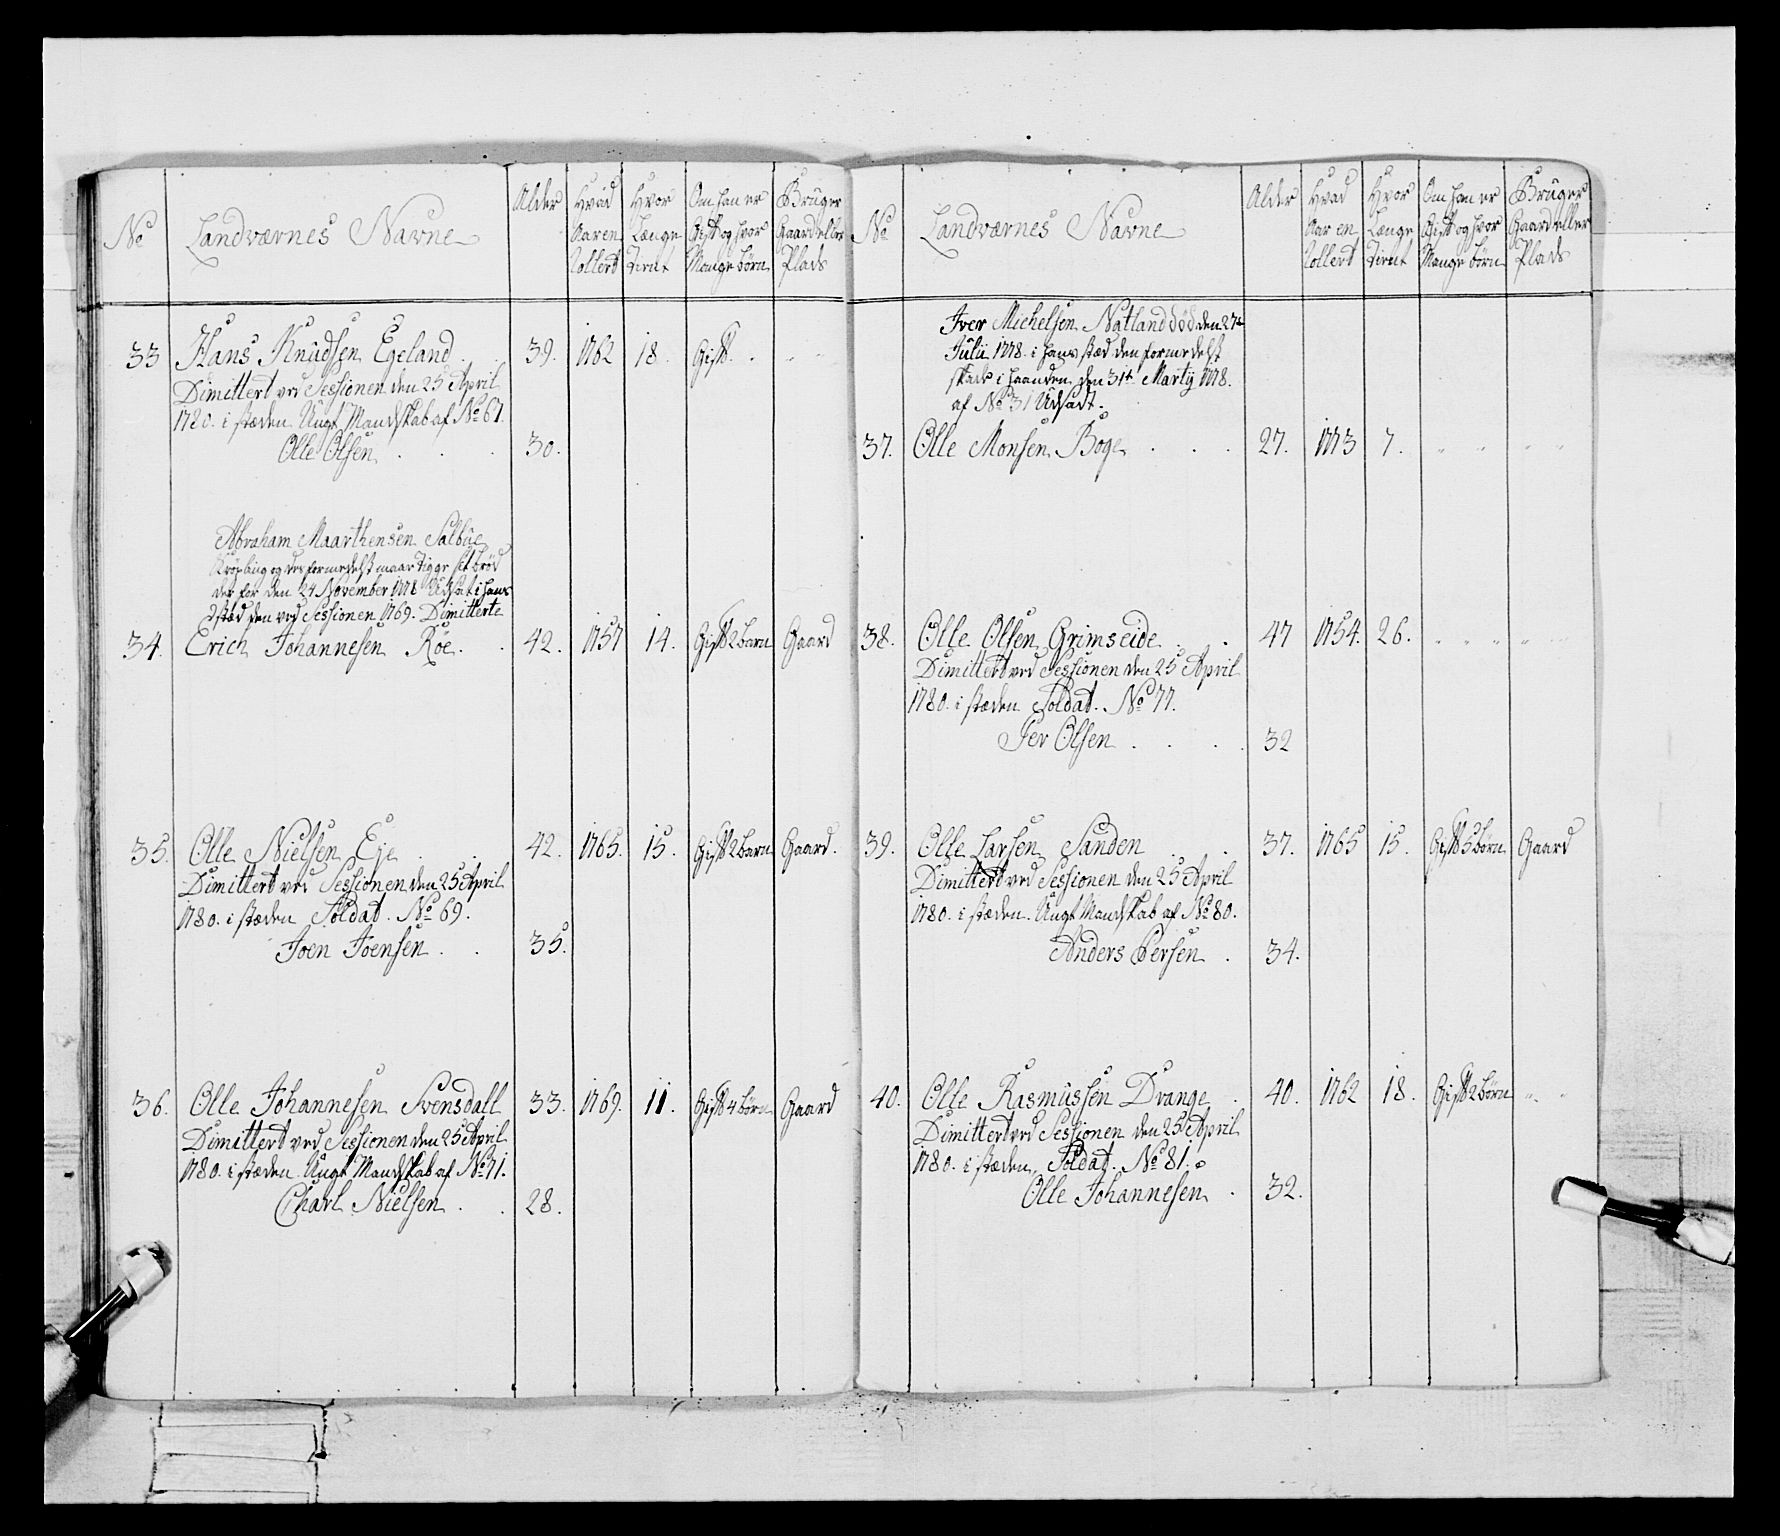 No Landværnes Navne Alder Hvad Aar en Rollert Hvor Længe Tient Om han er Gift og hvor Mange børn Bruger Gaard eller Plads
33 Hans Knudsen Egeland . . 39. 1762 18. Gift. " " "
Dimittert ved Sessionen den 25 April
1780. i stæden Ungt Mandskab af No 67.
Olle Olsen . . . 30.
Abraham Maarthensen Salbue
og der formedelst maar Tigge sit brød
der for den 24 November 1778 Udsat i hans
stæd den ved Sessionen 1769. Dimitterte
34. Erich Johannesen Röe. . 42. 1757 14. Gift 2 barn Gaard
35. Olle Nielsen Eje . 42. 1765. 15. Gift 2 barn Gaard.
Dimittert ved Sessionen den 25 April
1780. i stæden Soldat. No 69.
Joen Joensen . . 35.
36. Olle Johannesen Svensdall 33. 1769. 11. Gift 4 börn Gaard
Dimittert ved Sessionen den 25 April
1780. i stæden. Ungt Mandskab af No 71.
Charl Nielsen . . 28.
No Landværnes Navne Alder Hvad Aar en Rollert Hvor Længe Tient Om han er Gift og hvor Mange börn Bruger Gaard eller Plads
Iver Michelsen Natland död den 27de
Julii 1778. i hans stæd den formedelst
skade i haanden den 31te Martij 1778.
af No 31 Udsadt.
37. Olle Monsen Boge . . . 27. 1773 7. " " " "
38. Olle Olsen Grimseide . 47 1754. 26. " " " " "
Dimittert ved Sessionen den 25 April
1780. i stæden Soldat. No 77.
Iver Olsen . . . . 32
39. Olle Larsen Sanden . 37. 1765 15. Gift 5 börn Gaard
Dimittert ved Sessionen den 25 April
1780. i stæden. Ungt Mandskab af No 80.
Anders Persen . 34.
40. Olle Rasmussen Dvange . 40. 1762 18. Gift 2 börn " "
Dimittert ved Sessionen den 25 April
1780. i stæden, Soldat. No 81.
Olle Johannesen . 32.